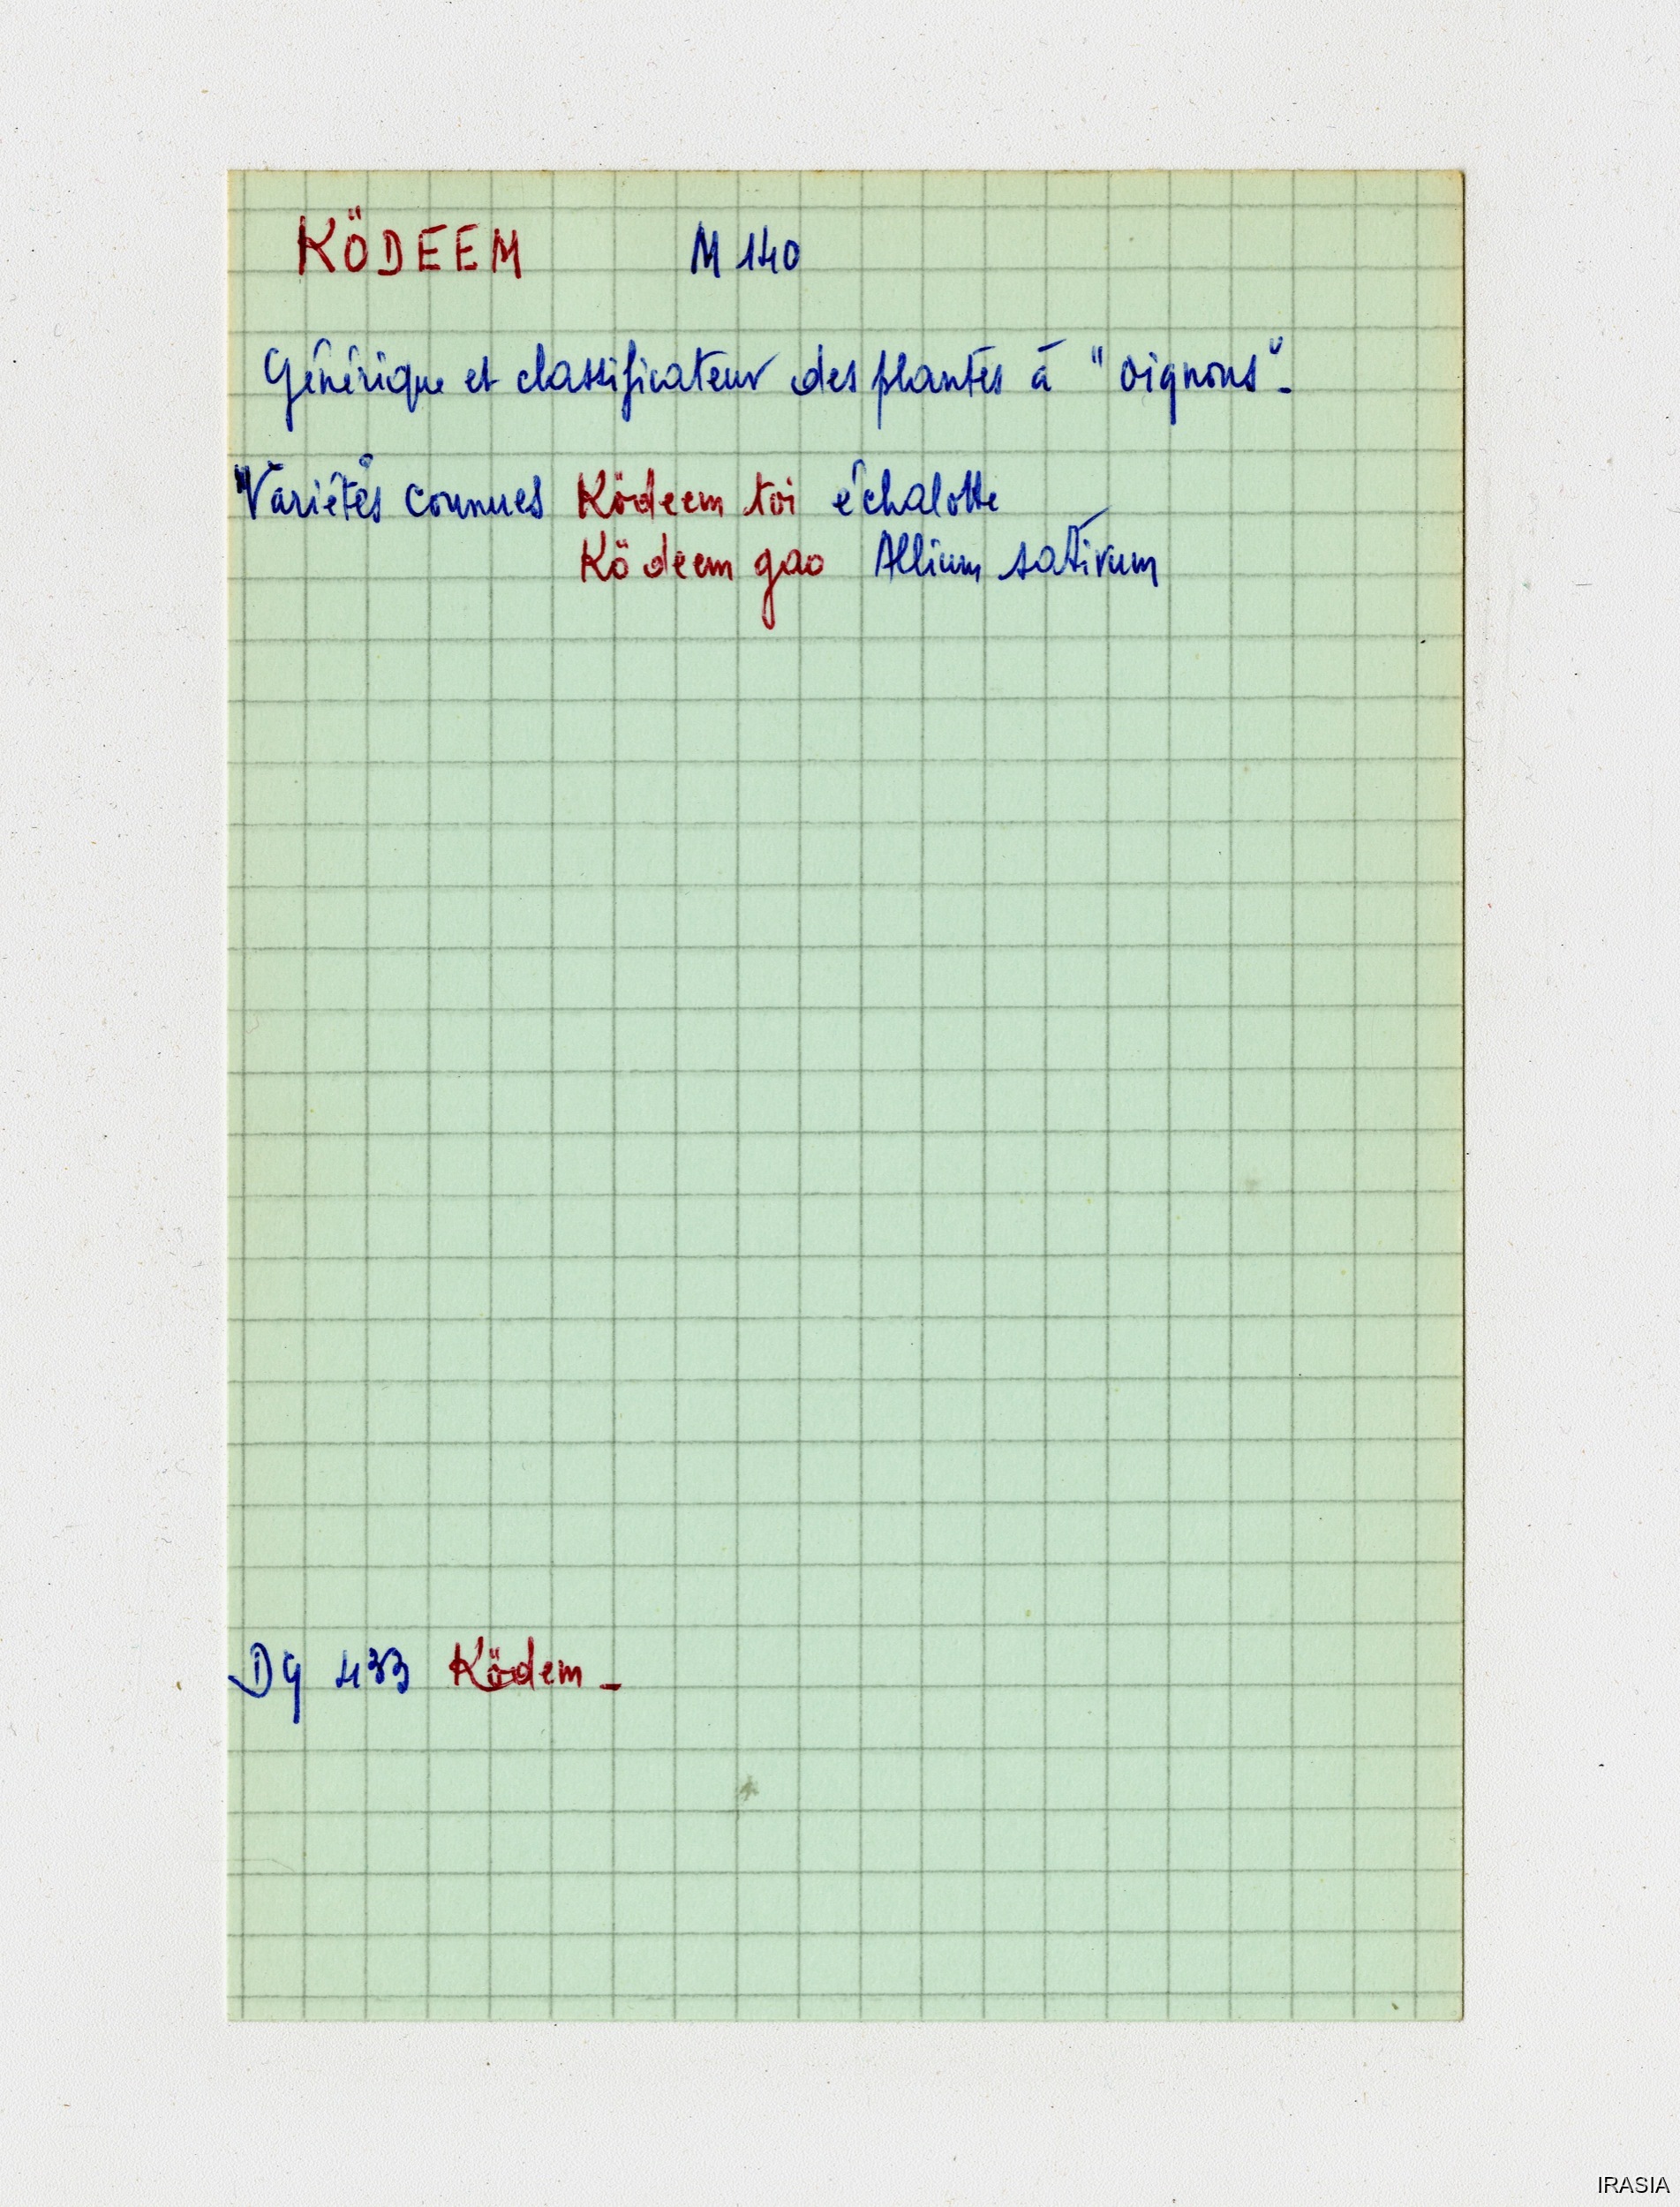 KÖDEEM M 140
Générique et classificateur des plantes à "oignons".
Variétés connues Ködeem toi échalotte
Ködeem gao Allium sativum
Dg 433 Ködem _
IRASIA